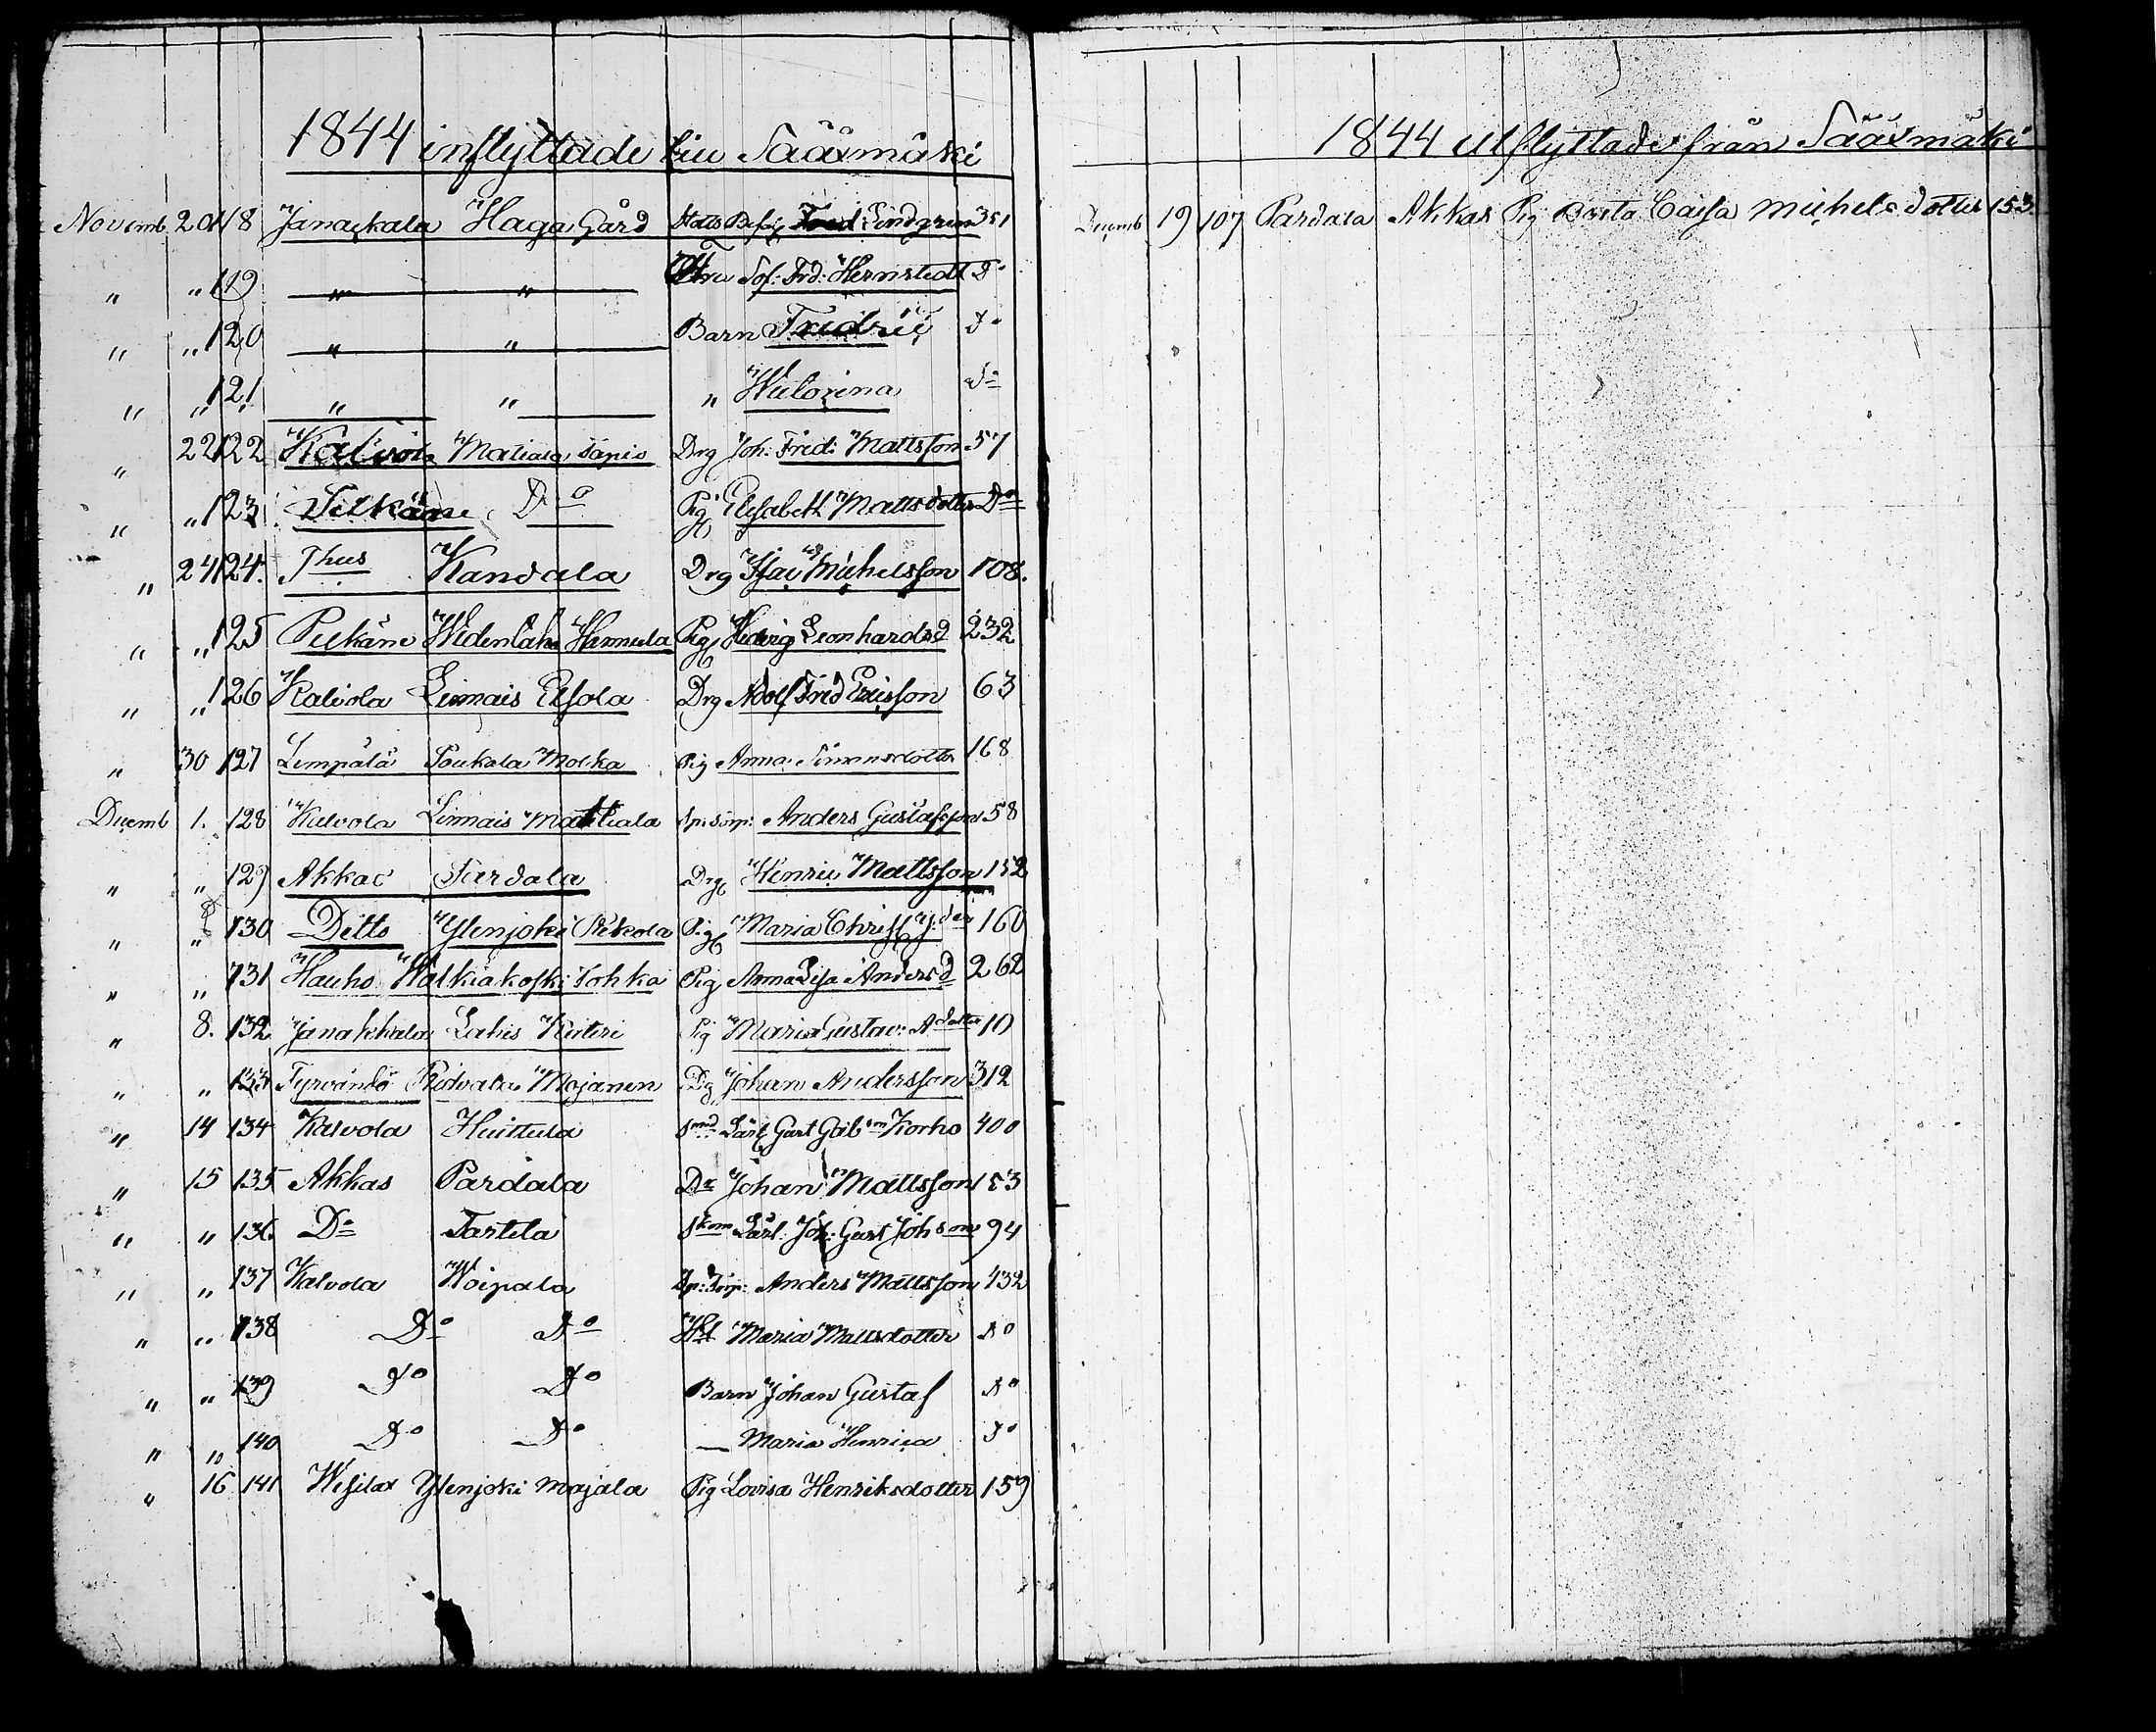 1844 inflyttade till Sääxmäki
Novemb 20 118 Janackala Haga Gård Fred Lindgren 351
" " 119 " " Fru Sof: Frd: Hernstedt Do
" " 120 " " Barn Fridric Do
" " 121 " " " Do
" 22 122 Kalvola Matiala Sapio Drg Joh: Fred: Mattsson 57
" " 123 Do Pig Elisabeth Mattsdotter Do
" 24 124. Thus Kandala Drg Isac Michelsson 108.
" " 125 Pelkäne Pig Hedvig Leonhardsd 232
" " 126 Kalvola Linnais Drg Adolf Fred Ericsson 63
" 30 127 Lempälä Pig Anna Simonsdotter 168
Decemb 1. 128 Kalvola Linnais Mattiala Anders Gustafsson 58
" " 129 Akkas Pardala Drg Henric Mattsson 152
" " 130 Ditto Ylenjoki Pig Maria Christ 160
" " 131 Hauho Walkiakoski Pig Anna Lisa Andersd 262
" 8. 132 Janakkala Lahis Pig Maria Gustav: Adotter 10
" " 133 Tyrvändö Ridvala Mojanen Dg Johan Andersson 312
" 14 134 Kalvola Huittula Lärl Gust Gab Korho 400
" 15 135 Akkas Pardala Dr Johan Mattsson 153
" " 136 Do Tarttila Skom Lärl. Joh: Gust Johson 94
" " 137 Kalvola Woipala Sp: Torp: Anders Mattsson 432
" " 138 Do Do Hst Maria Mattsdotter Do
" " 139 Do Do Barn Johan Gustaf Do
" " 140 Do Do — Maria Henrica Do
" 16 141 Wesilax Ylenjoki Majala Pig Lovisa Henriksdotter 159
1844 utflyttade från Sääxmäki
Decemb 19 107 Pardala Akkas Pig Caisa Michelsdotter 153